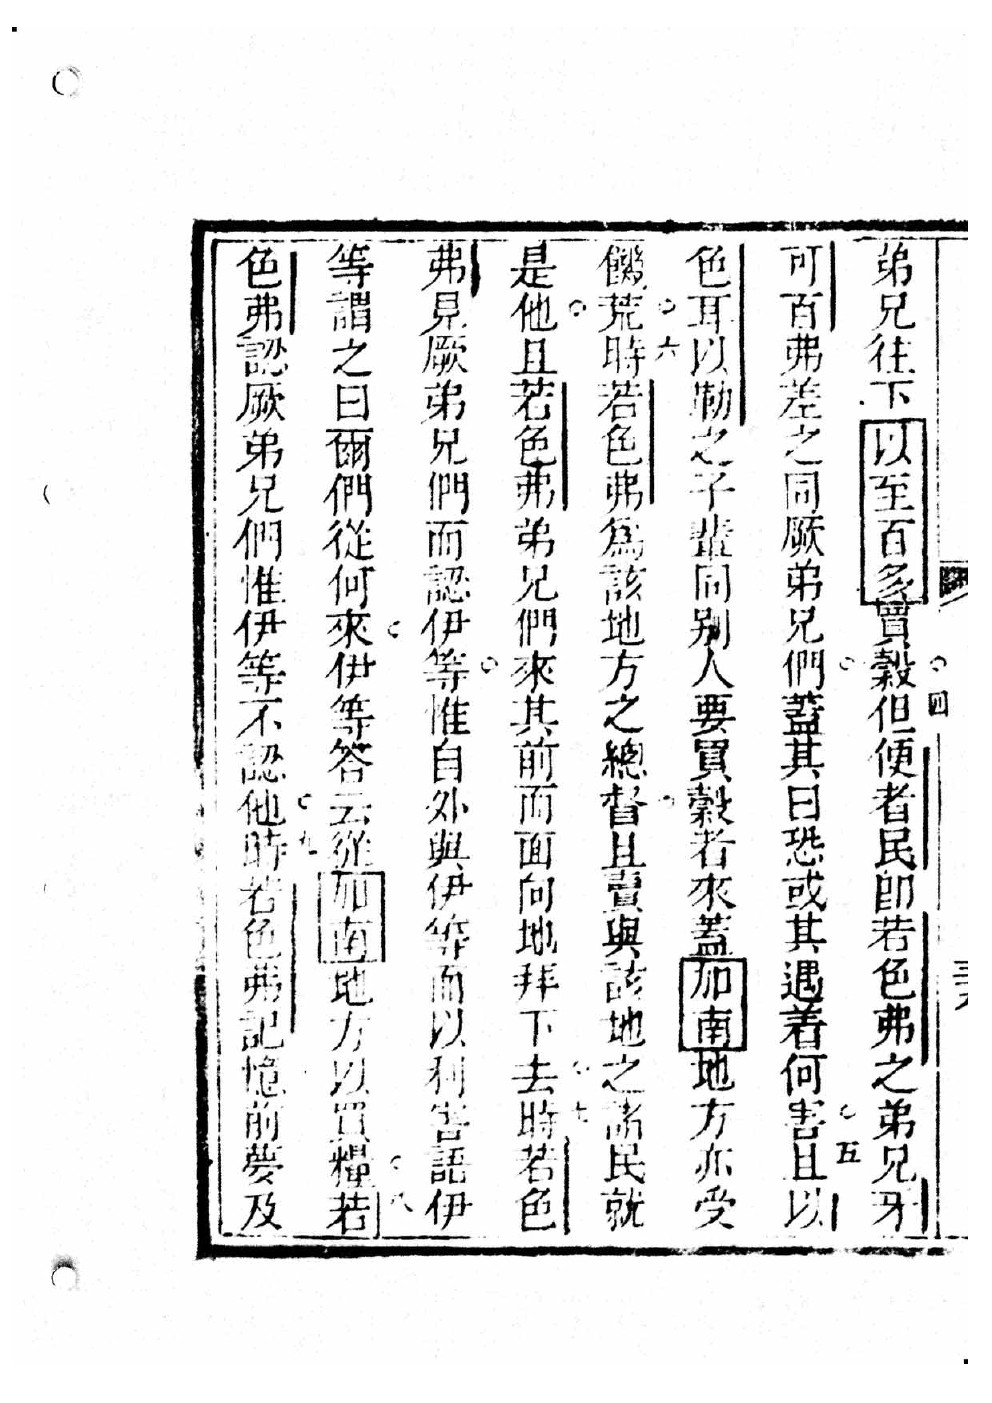 弟兄往下以至百多買穀四但便者民卽若色弗之弟兄牙
可百弗差之同厥弟兄們蓋其曰恐或其遇着何害五且以
色耳以勒之子輩同別人要買穀者來蓋加南地方亦受
饑荒六時若色弗爲該地方之總督且賣與該地之諸民就
是他且若色弗弟兄們來其前而面向地拜下去七時若色
弗見厥弟兄們而認伊等惟自外與伊等而以利害語伊
等謂之曰爾們從何來伊等答云從加南地方以買糧八若
色弗認厥弟兄們惟伊等不認他九時若色弗記憶前夢及